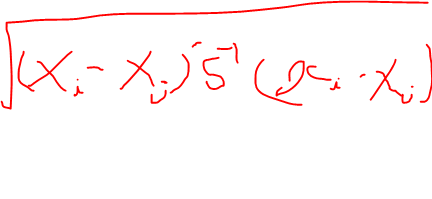 √((x_i - x_j)' S^-1 (x_i - x_j))